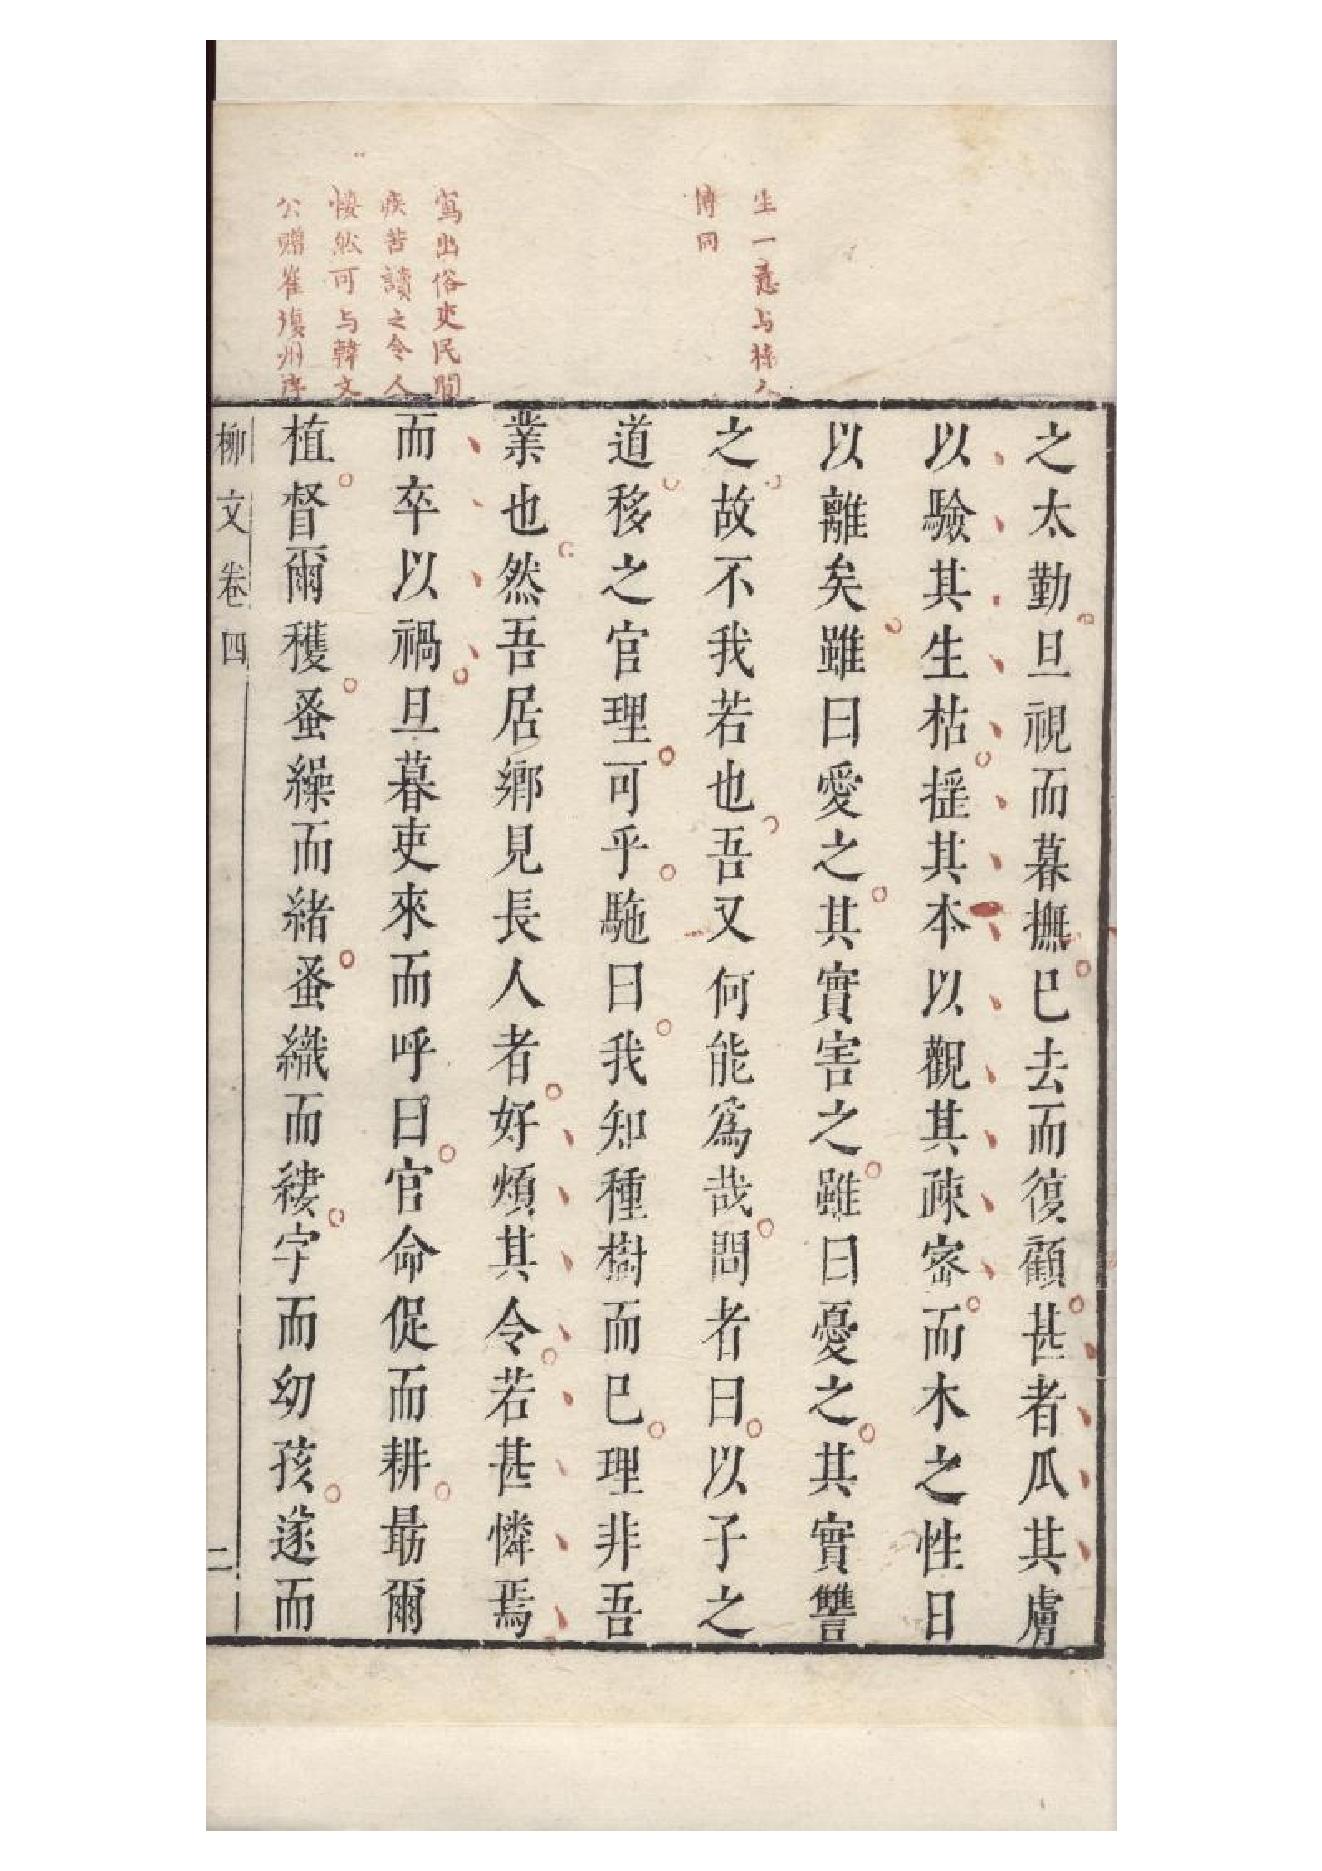 生一意与梓人
傳同
寫出俗吏民間
疾苦讀之令人
悽然可与韓文
公贈崔復州序
之太勤旦視而暮撫已去而復顧甚者爪其膚
以驗其生枯搖其本以觀其疎密而木之性日
以離矣雖曰愛之其實害之雖曰憂之其實讐
之故不我若也吾又何能爲哉問者曰以子之
道移之官理可乎駞曰我知種樹而已理非吾
業也然吾居鄉見長人者好煩其令若甚憐焉
而卒以禍旦暮吏來而呼曰官命促而耕朂爾
植督爾穫蚤繰而緒蚤織而縷字而幼孩遂而
柳文卷四
二